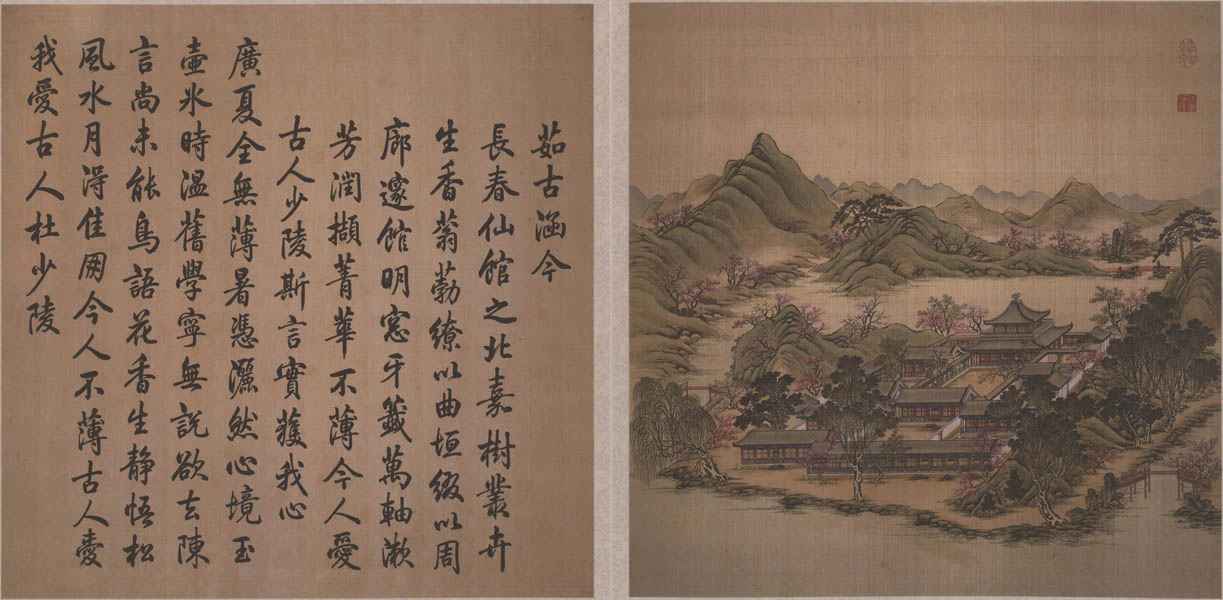 茹古涵今
長春仙館之北嘉樹叢卉
生香蓊勃繚以曲垣綴以周
廊邃館明窓牙籤萬軸漱
芳潤擷菁華不薄今人愛
古人少陵斯言實獲我心
廣夏全無薄暑憑灑然心境玉
壺氷時溫舊學寧無説欲去陳
言尚未能鳥語花香生静悟松
風水月淂佳朋今人不薄古人愛
我愛古人杜少陵